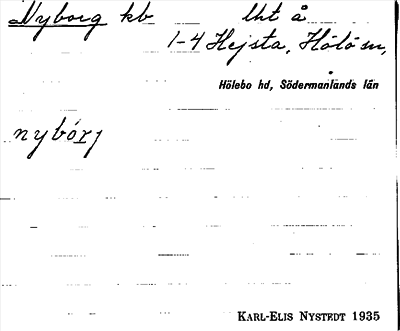 Nyborg kb lht å
1-4 Hejsta, Hölö sn,
Hölebo hd, Södermanlands län
nybörj
KARL-ELIS NYSTEDT 1935